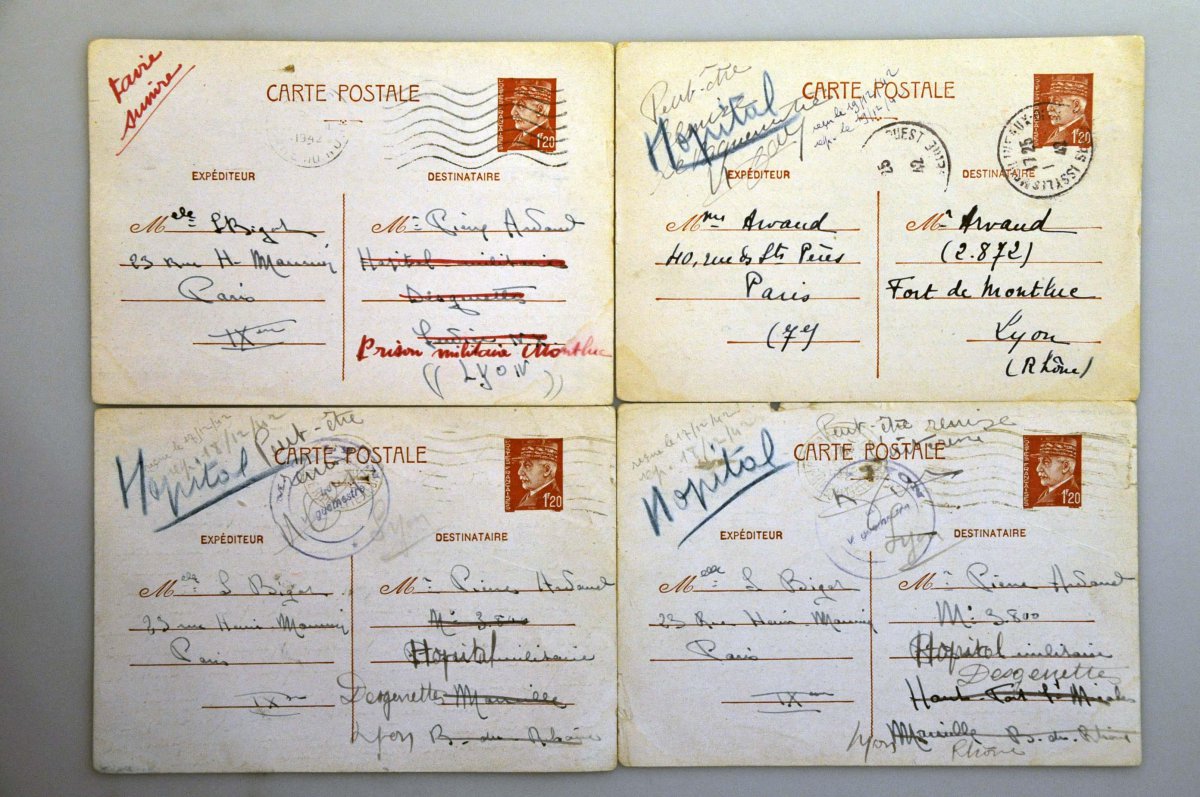 faire
suivre
CARTE POSTALE
1942
1F20
EXPÉDITEUR
DESTINATAIRE
Melle S Bigot
23 Rue H.
Paris
IXem
Mr Pierre
Hopital militaire
Desgenettes
Prison militaire Montluc
((LYON))
Peut-être
Hopital
reçu le 19/12/42
rép. le
CARTE POSTALE
1F20
EXPÉDITEUR
DESTINATAIRE
Mme Arvaud
40, rue des Sts Pères
Paris
(7e)
Mr Arvaud
(2.872)
Fort de Montluc
Lyon
(Rhône)
reçue le 17/12/42
rép. 18/12/42
Peut-être
Hopital
CARTE POSTALE
Lyon
1F20
EXPÉDITEUR
DESTINATAIRE
Melle S Bigot
23 rue Henri
Paris
IXem
Mr Pierre
Mle 3.800
Hopital militaire
Desgenettes Marseille
Lyon B. du Rhône
reçue le 17/12/42
rép. 18/12/42
Peut-être remise
Hopital
CARTE POSTALE
Lyon
1F20
EXPÉDITEUR
DESTINATAIRE
Melle S Bigot
23 Rue Henri
Paris
IXem
Mr Pierre
Mle 3.800
Hopital militaire
Desgenettes
Haut Fort St Nicolas
Lyon Marseille B. du Rhône
Rhône